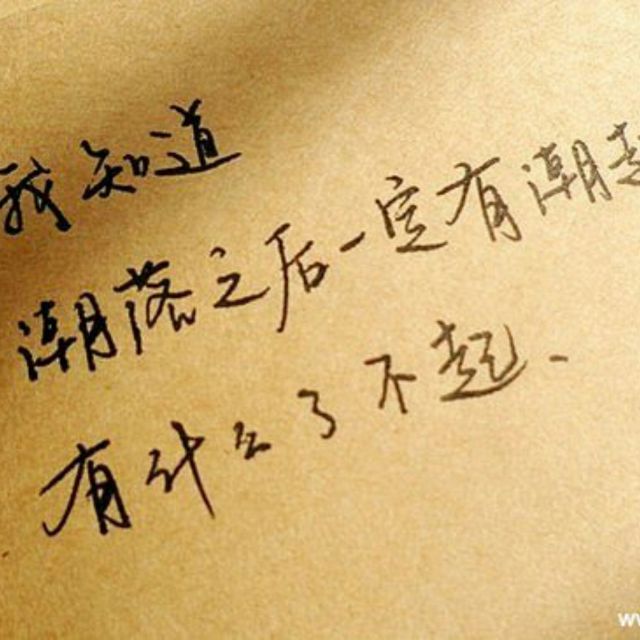 我知道
潮落之后一定有潮起
有什么了不起、
w